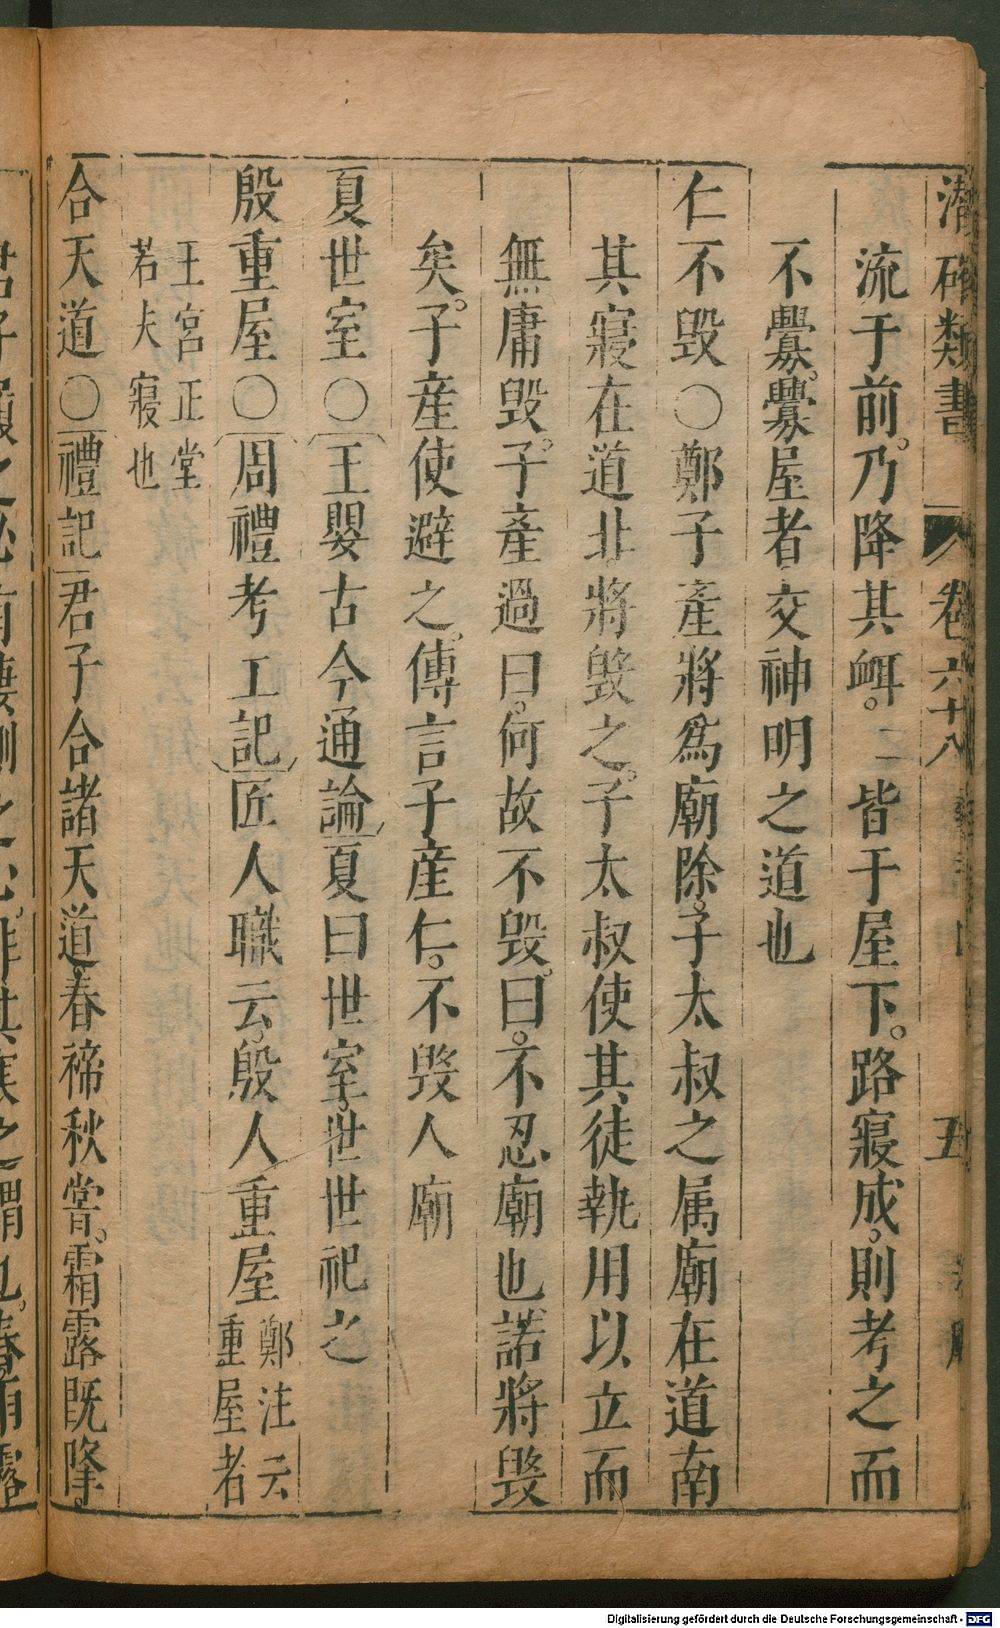 潛確類書 卷六十八 五
流于前。乃降其衈。二皆于屋下。路寢成。則考之而
不釁。釁屋者交神明之道也
仁不毀○鄭子產將爲廟除。子太叔之属廟在道南
其寢在道北將毀之。子太叔使其徒執用以立而
無庸毀。子產過曰。何故不毀。曰。不忍廟也諾將毀
矣。子産使避之。傳言子産仁。不毀人廟
夏世室○王嬰古今通論夏曰世室。世世祀之
殷重屋○周禮考工記匠人職云。殷人重屋鄭注云重屋者
王宮正堂若夫寢也
合天道○禮記君子合諸天道春禘秋嘗。霜露既降。
Digitalisierung gefördert durch die Deutsche Forschungsgemeinschaft - DFG